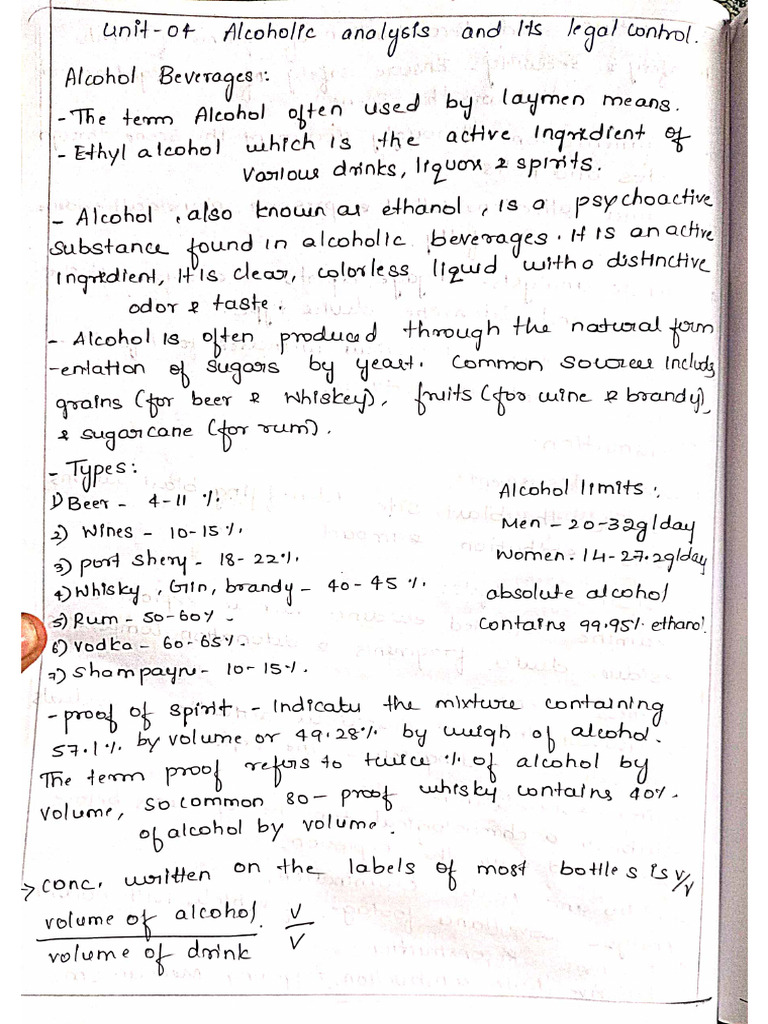 Unit-04 Alcoholic analysis and Its legal control.
Alcohol Beverages:
- The term Alcohol often used by laymen means.
- Ethyl alcohol which is the active Ingredient of
various drinks, liquor & spirits.
- Alcohol, also known as ethanol, is a psychoactive
substance found in alcoholic beverages. It is an active
Ingredient, It is clear, colorless liquid with a distinctive
odor & taste.
- Alcohol is often produced through the natural ferm
-entation of sugars by yeast. Common sources include
grains (for beer & whiskey), fruits (for wine & brandy),
& sugarcane (for rum).
- Types:
1) Beer - 4-11 %.
2) Wines - 10-15%.
3) port shery - 18-22%.
4) Whisky, Gin, brandy - 40-45 %.
5) Rum - 50-60% -
6) vodka - 60-65%.
7) Shampayn - 10-15%.
Alcohol limits:
Men - 20-32g/day
Women: 14-27.2g/day
absolute alcohol
Contains 99.95% ethanol.
- proof of spirit - Indicate the mixture containing
57.1% by volume or 49.28% by weigh of alcohol.
The term proof refers to twice % of alcohol by
volume, so common 80-proof whisky contains 40%.
of alcohol by volume.
→ conc. written on the labels of most bottles is v/v
volume of alcohol. V
volume of drink V